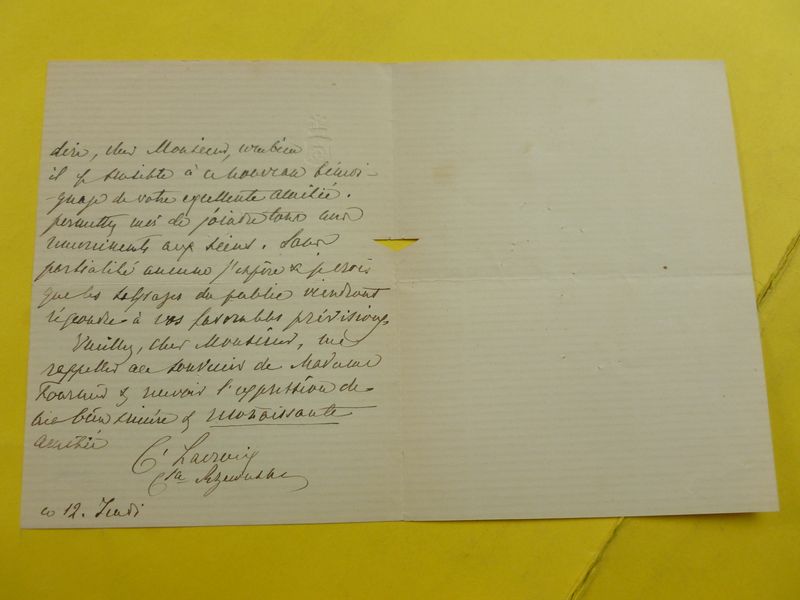 dire, cher Monsieur, combien
il est sensible à ce nouveau témoi-
gnage de votre excellente amitié.
permettez moi de joindre tous mes
remerciments aux siens. Sans
partialité aucune j'espère & je crois
que les sufrages du public viendront
répondre à vos favorables prévisions
Veuillez, cher Monsieur, me
rappeller au souvenir de Madame
Fournier & recevoir l'expression de
ma bien sincère & reconnaissante
amitié
Lacroix
ce 12. Jeudi